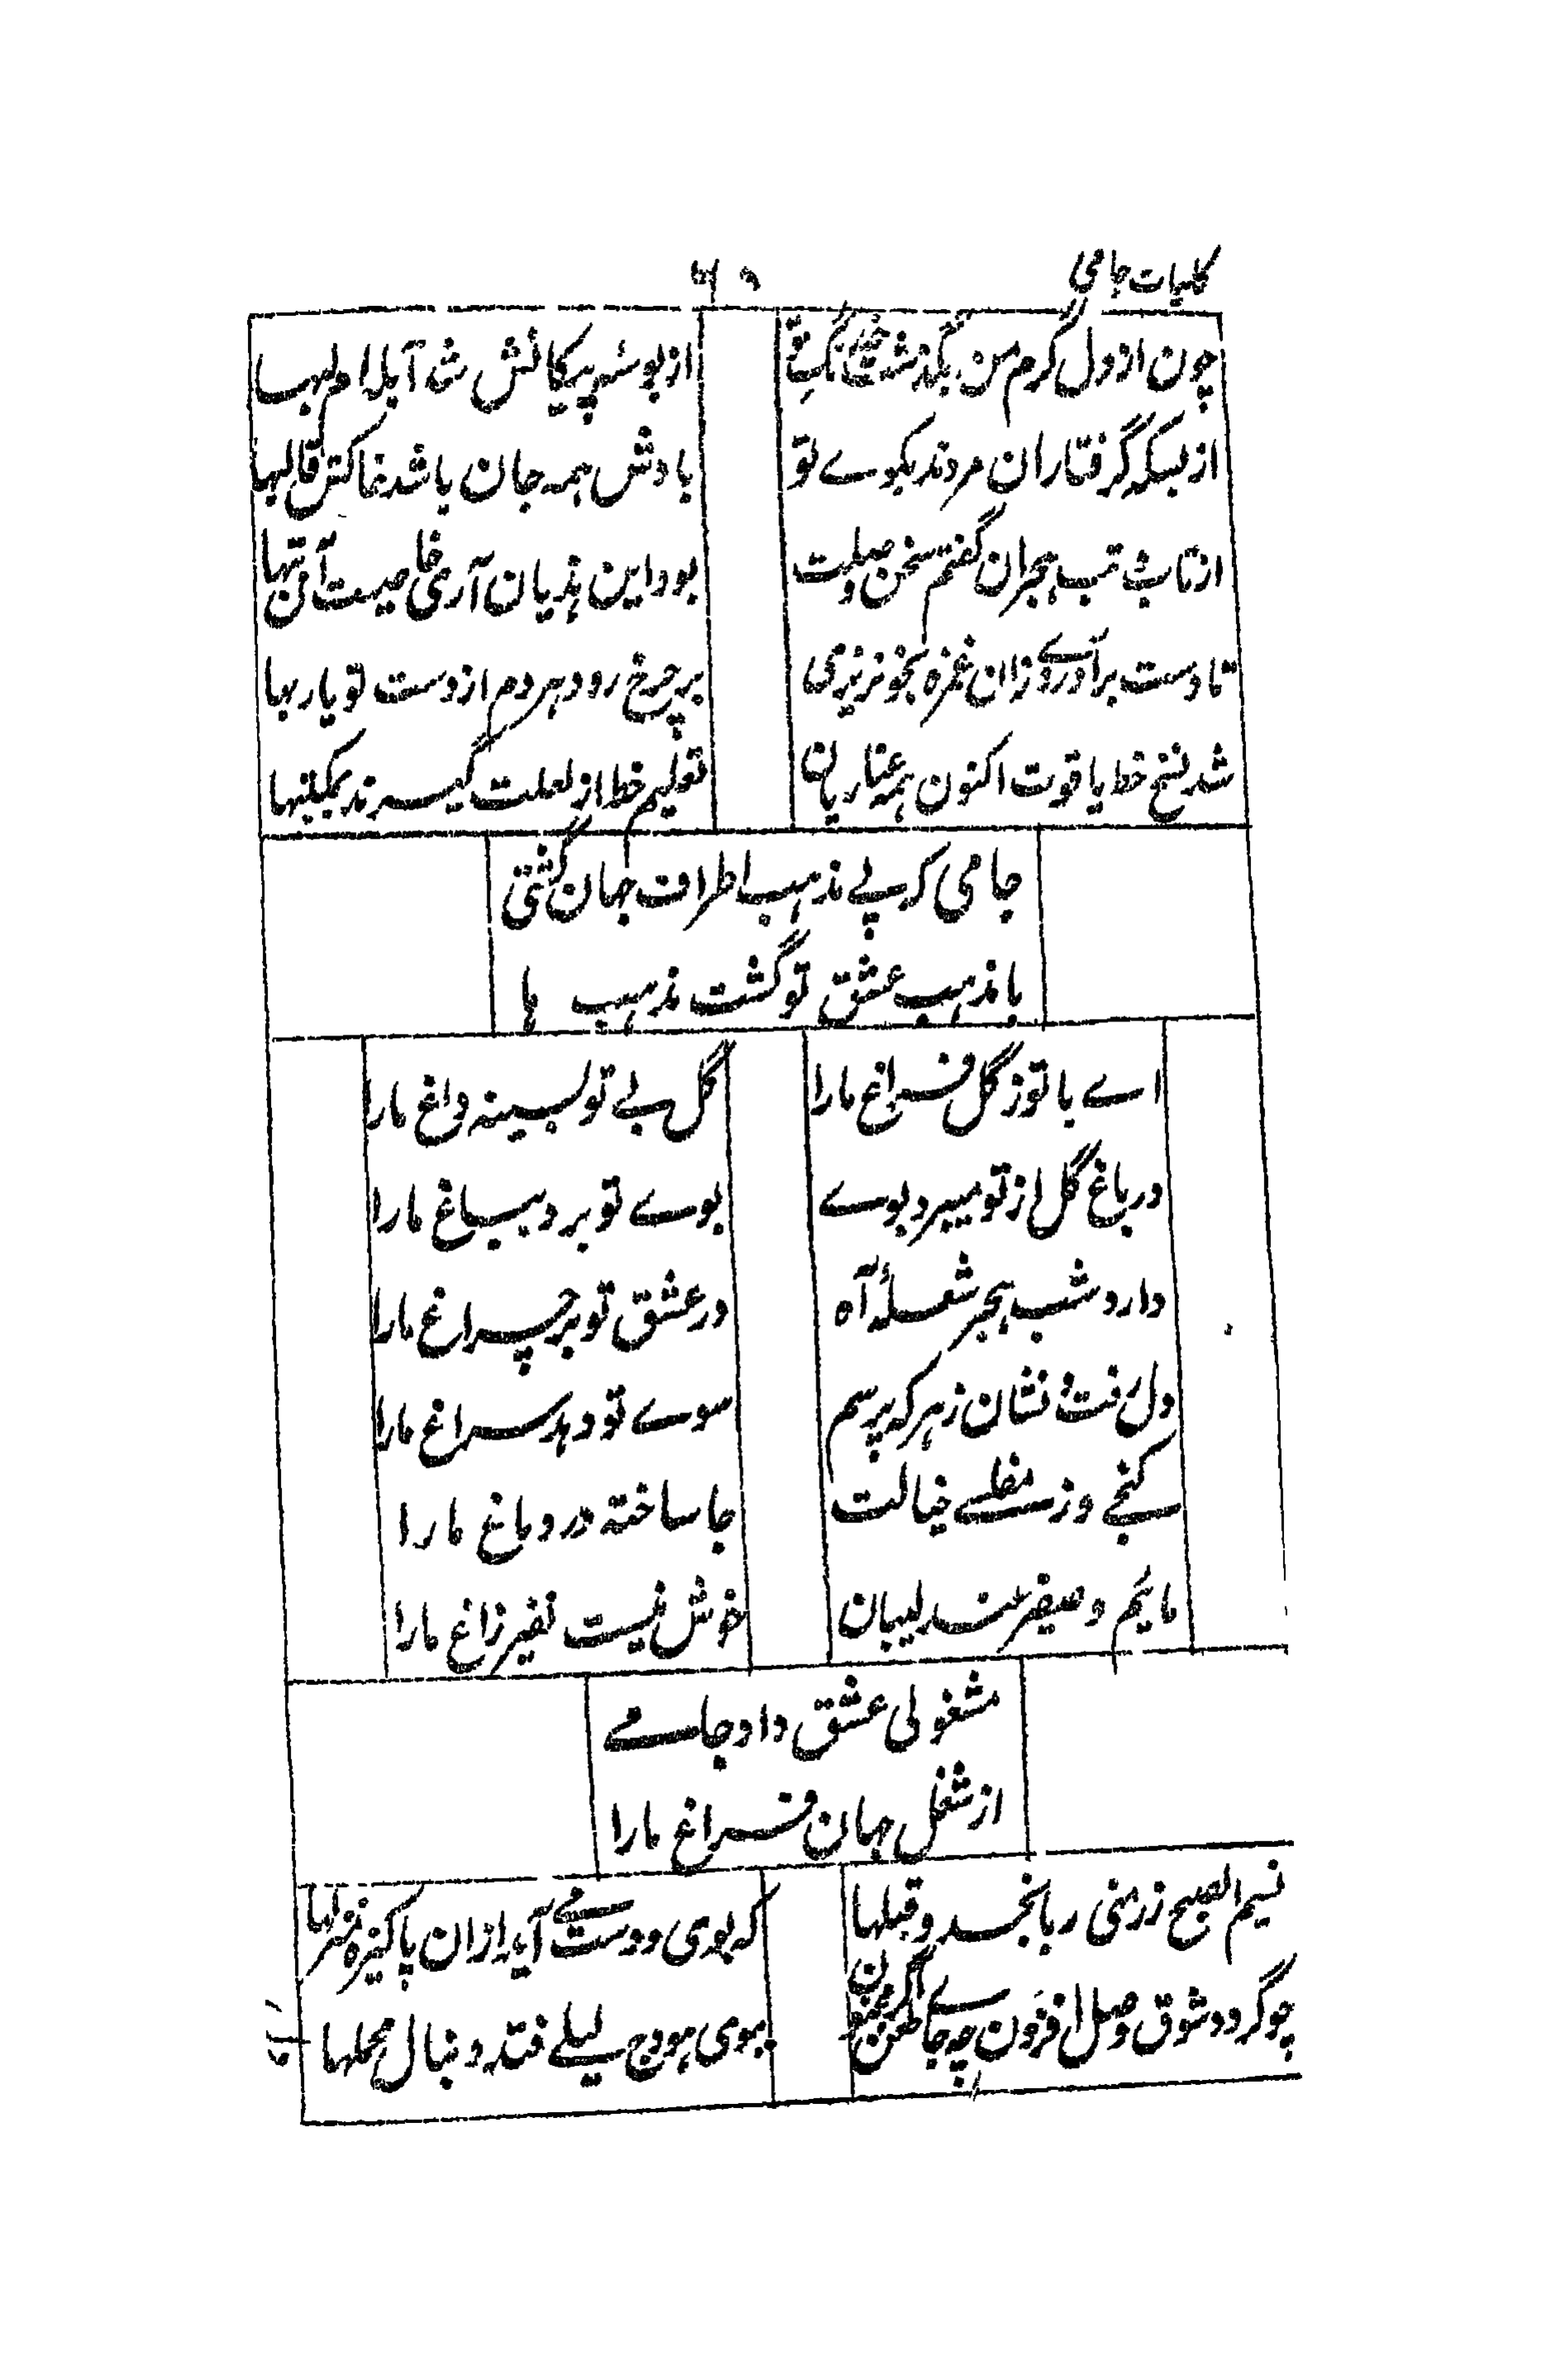 کلیات جامی
۶۵
چون از دل گرم من بگذشت خدنگ تو
از بوسه پیکانش شد آبله ام لبها
از بسکه گرفتاران مردند بکوے تو
بادش همه جان باشد خاکش قالبها
از تاب تب هجران گفتم سخن وصلت
بود این هذیان آری خاصیت آن تبها
تا دست برآوردے زان غمزه بخونریزی
بر چرخ رود هر دم از دست تو یاربها
شد نسخ خط یاقوت اکنون همه عنا یان
تعلیم خط از لعلت گیرند بمکتبها
جامی که پے مذهب اطراف جهان گشتی
با مذهب عشق تو گشت مذهب ها
اے با تو ز گل فراغ مارا
گل بے تو بسینه داغ مارا
در باغ گل از تو میبرد بوے
بوے تو برد بباغ مارا
دارد شب هجر شعلهٔ آه
در عشق تو بر چراغ مارا
دل رفت و نشان ز هر که پرسم
سوے تو دهد سراغ مارا
گنجے وز مفلسے خیالت
جا ساخته در دماغ مارا
مائیم و صفیر عندلیبان
خوش نیست نفیر زاغ مارا
مشغولی عشق داد جامے
از شغل جهان فراغ مارا
نسیم الصبح زر منی ربا نجد و قبلها
که بوی دوست مے آید ازان پاکیزه منزلها
چو گردد شوق وصل افزون چه جاے طعن اگر مجنون
ببوی هودج لیلے فتد دنبال محملها